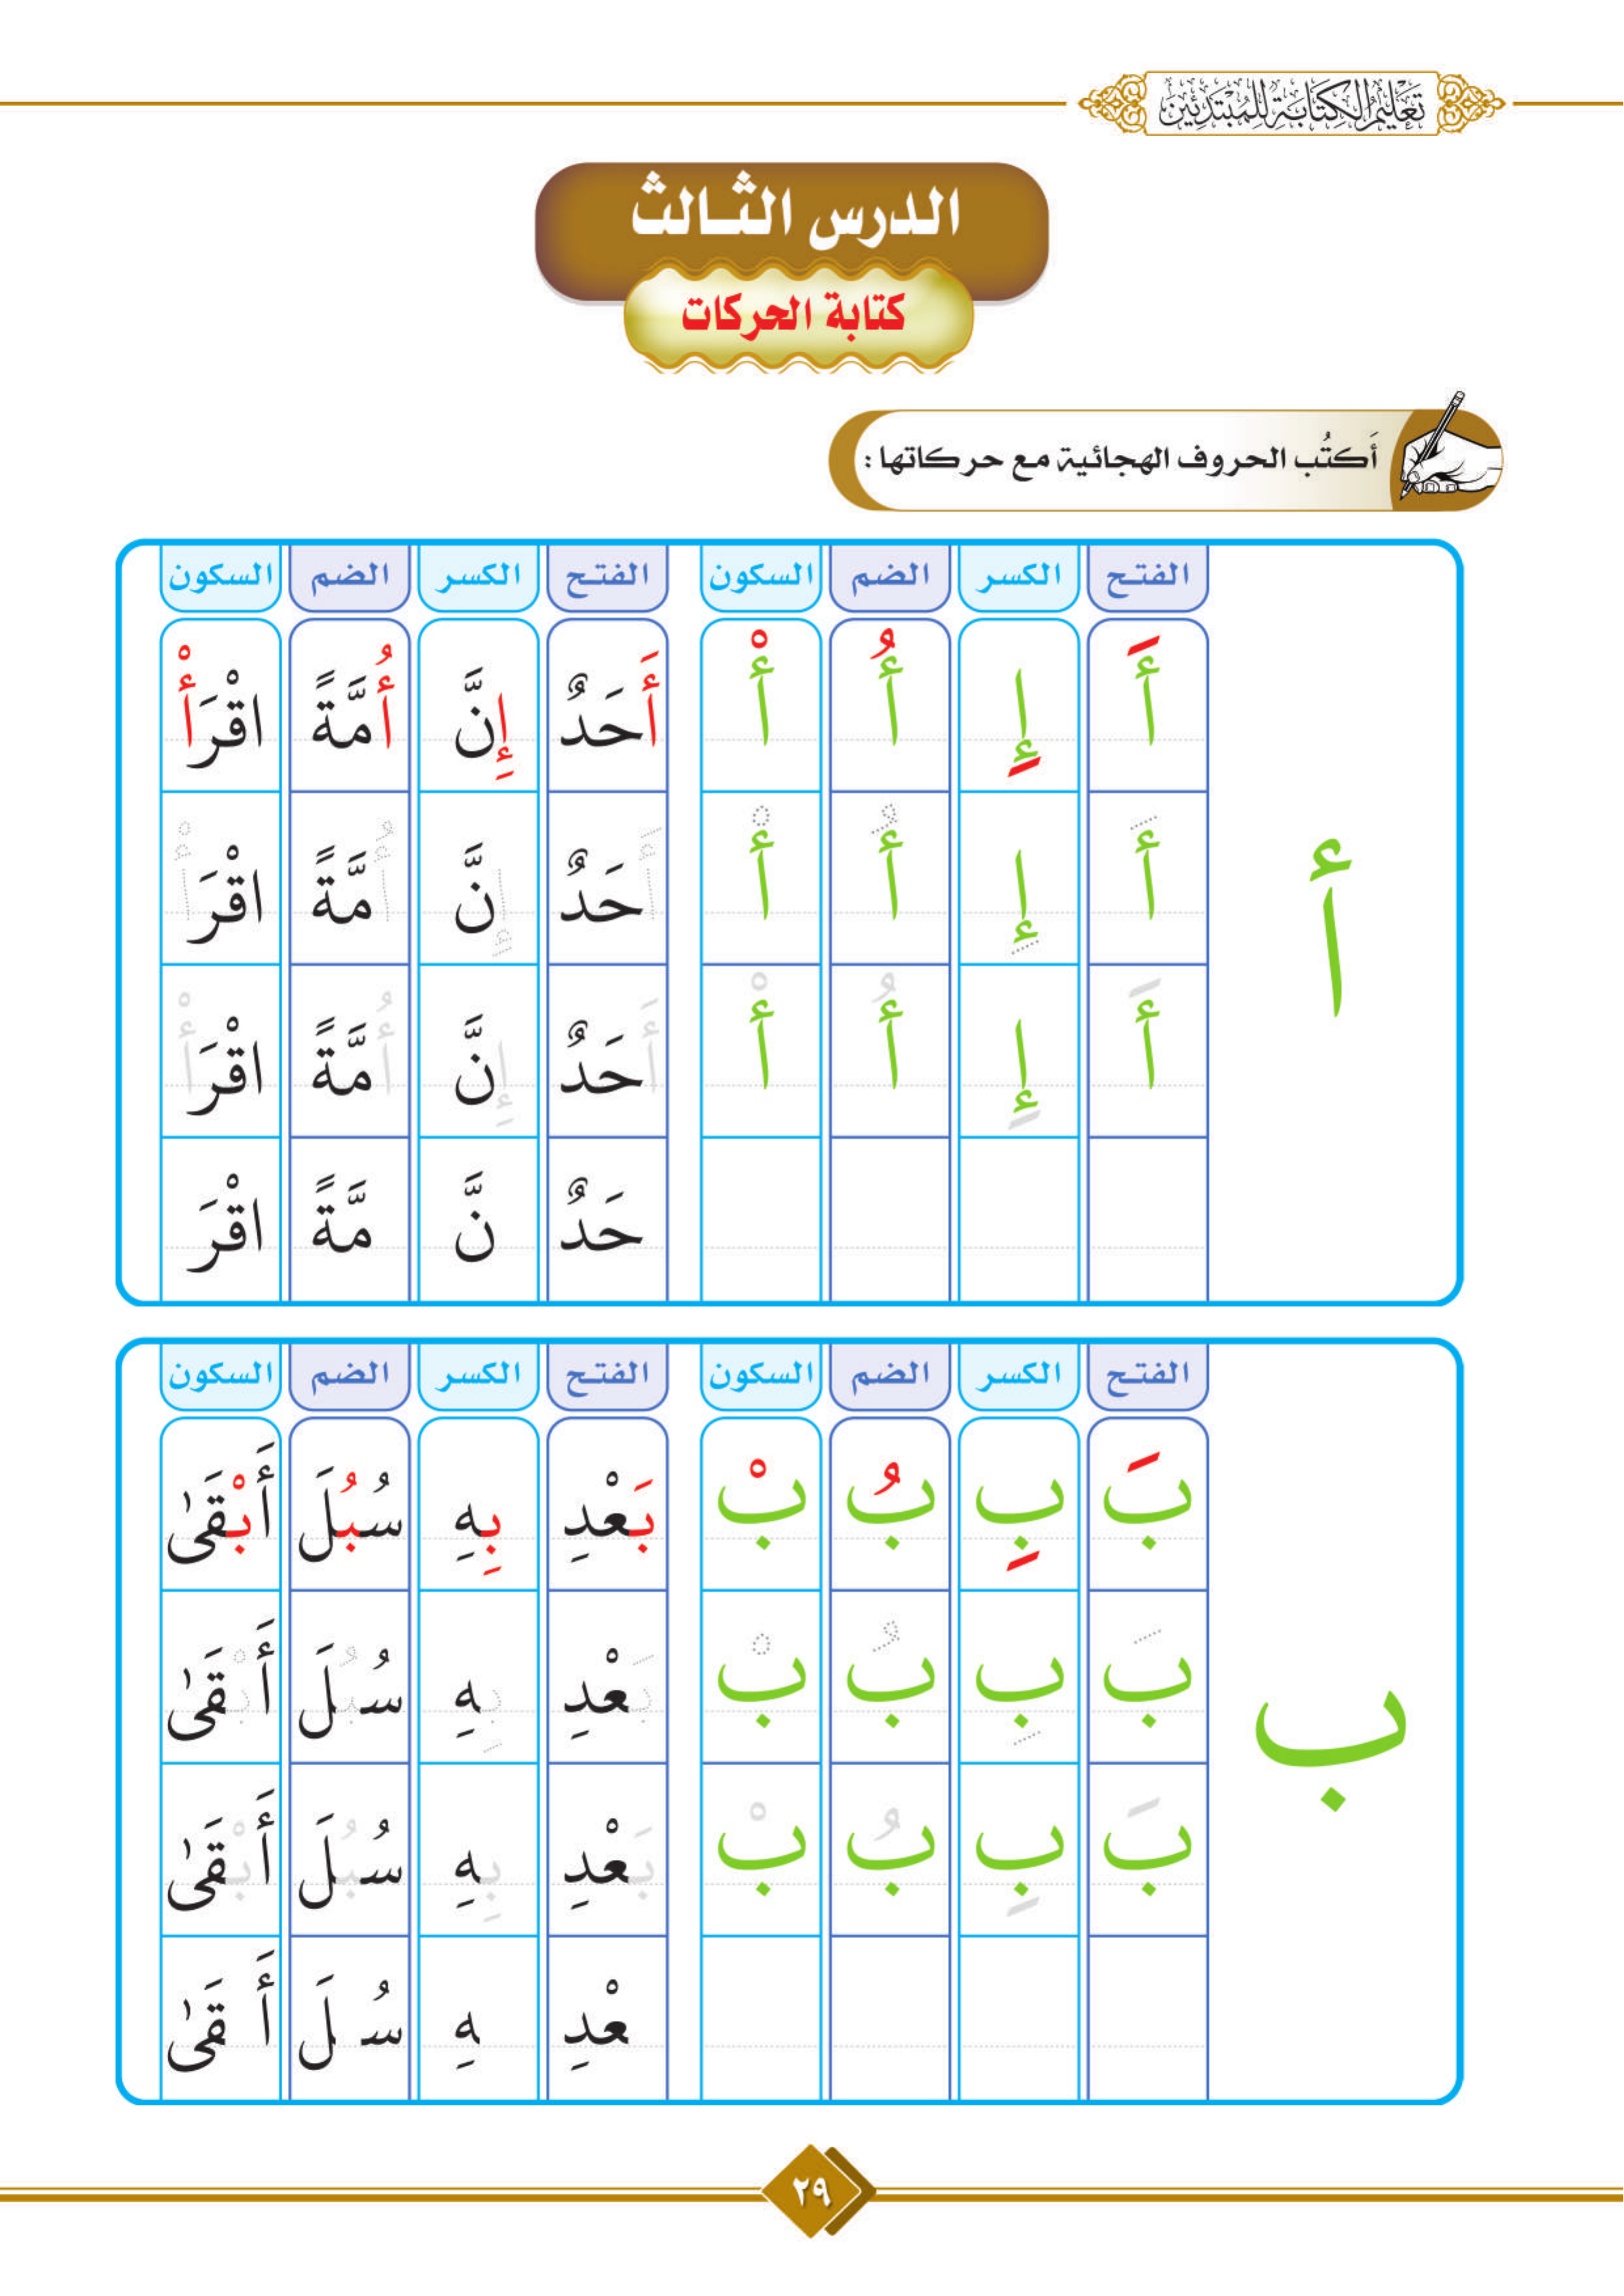 تَعْلِيمُ الْكِتَابَةِ لِلْمُبْتَدِئِينَ
الدرس الثالث
كتابة الحركات
أَكتُب الحروف الهجائية مع حركاتها :
الفتح الكسر الضم السكون الفتح الكسر الضم السكون
أَ إِ أُ أْ أَحَدٌ إِنَّ أُمَّةً اقْرَأْ
أَ إِ أُ أْ أَحَدٌ إِنَّ أُمَّةً اقْرَأْ
أ
أَ إِ أُ أْ أَحَدٌ إِنَّ أُمَّةً اقْرَأْ
حَدٌ نَّ مَّةً اقْرَ
الفتح الكسر الضم السكون الفتح الكسر الضم السكون
بَ بِ بُ بْ بَعْدِ بِهِ سُبُلَ أَبْقَىٰ
بَ بِ بُ بْ بَعْدِ بِهِ سُبُلَ أَبْقَىٰ
ب
بَ بِ بُ بْ بَعْدِ بِهِ سُبُلَ أَبْقَىٰ
عْدِ هِ سُ لَ أَ قَىٰ
٢٩